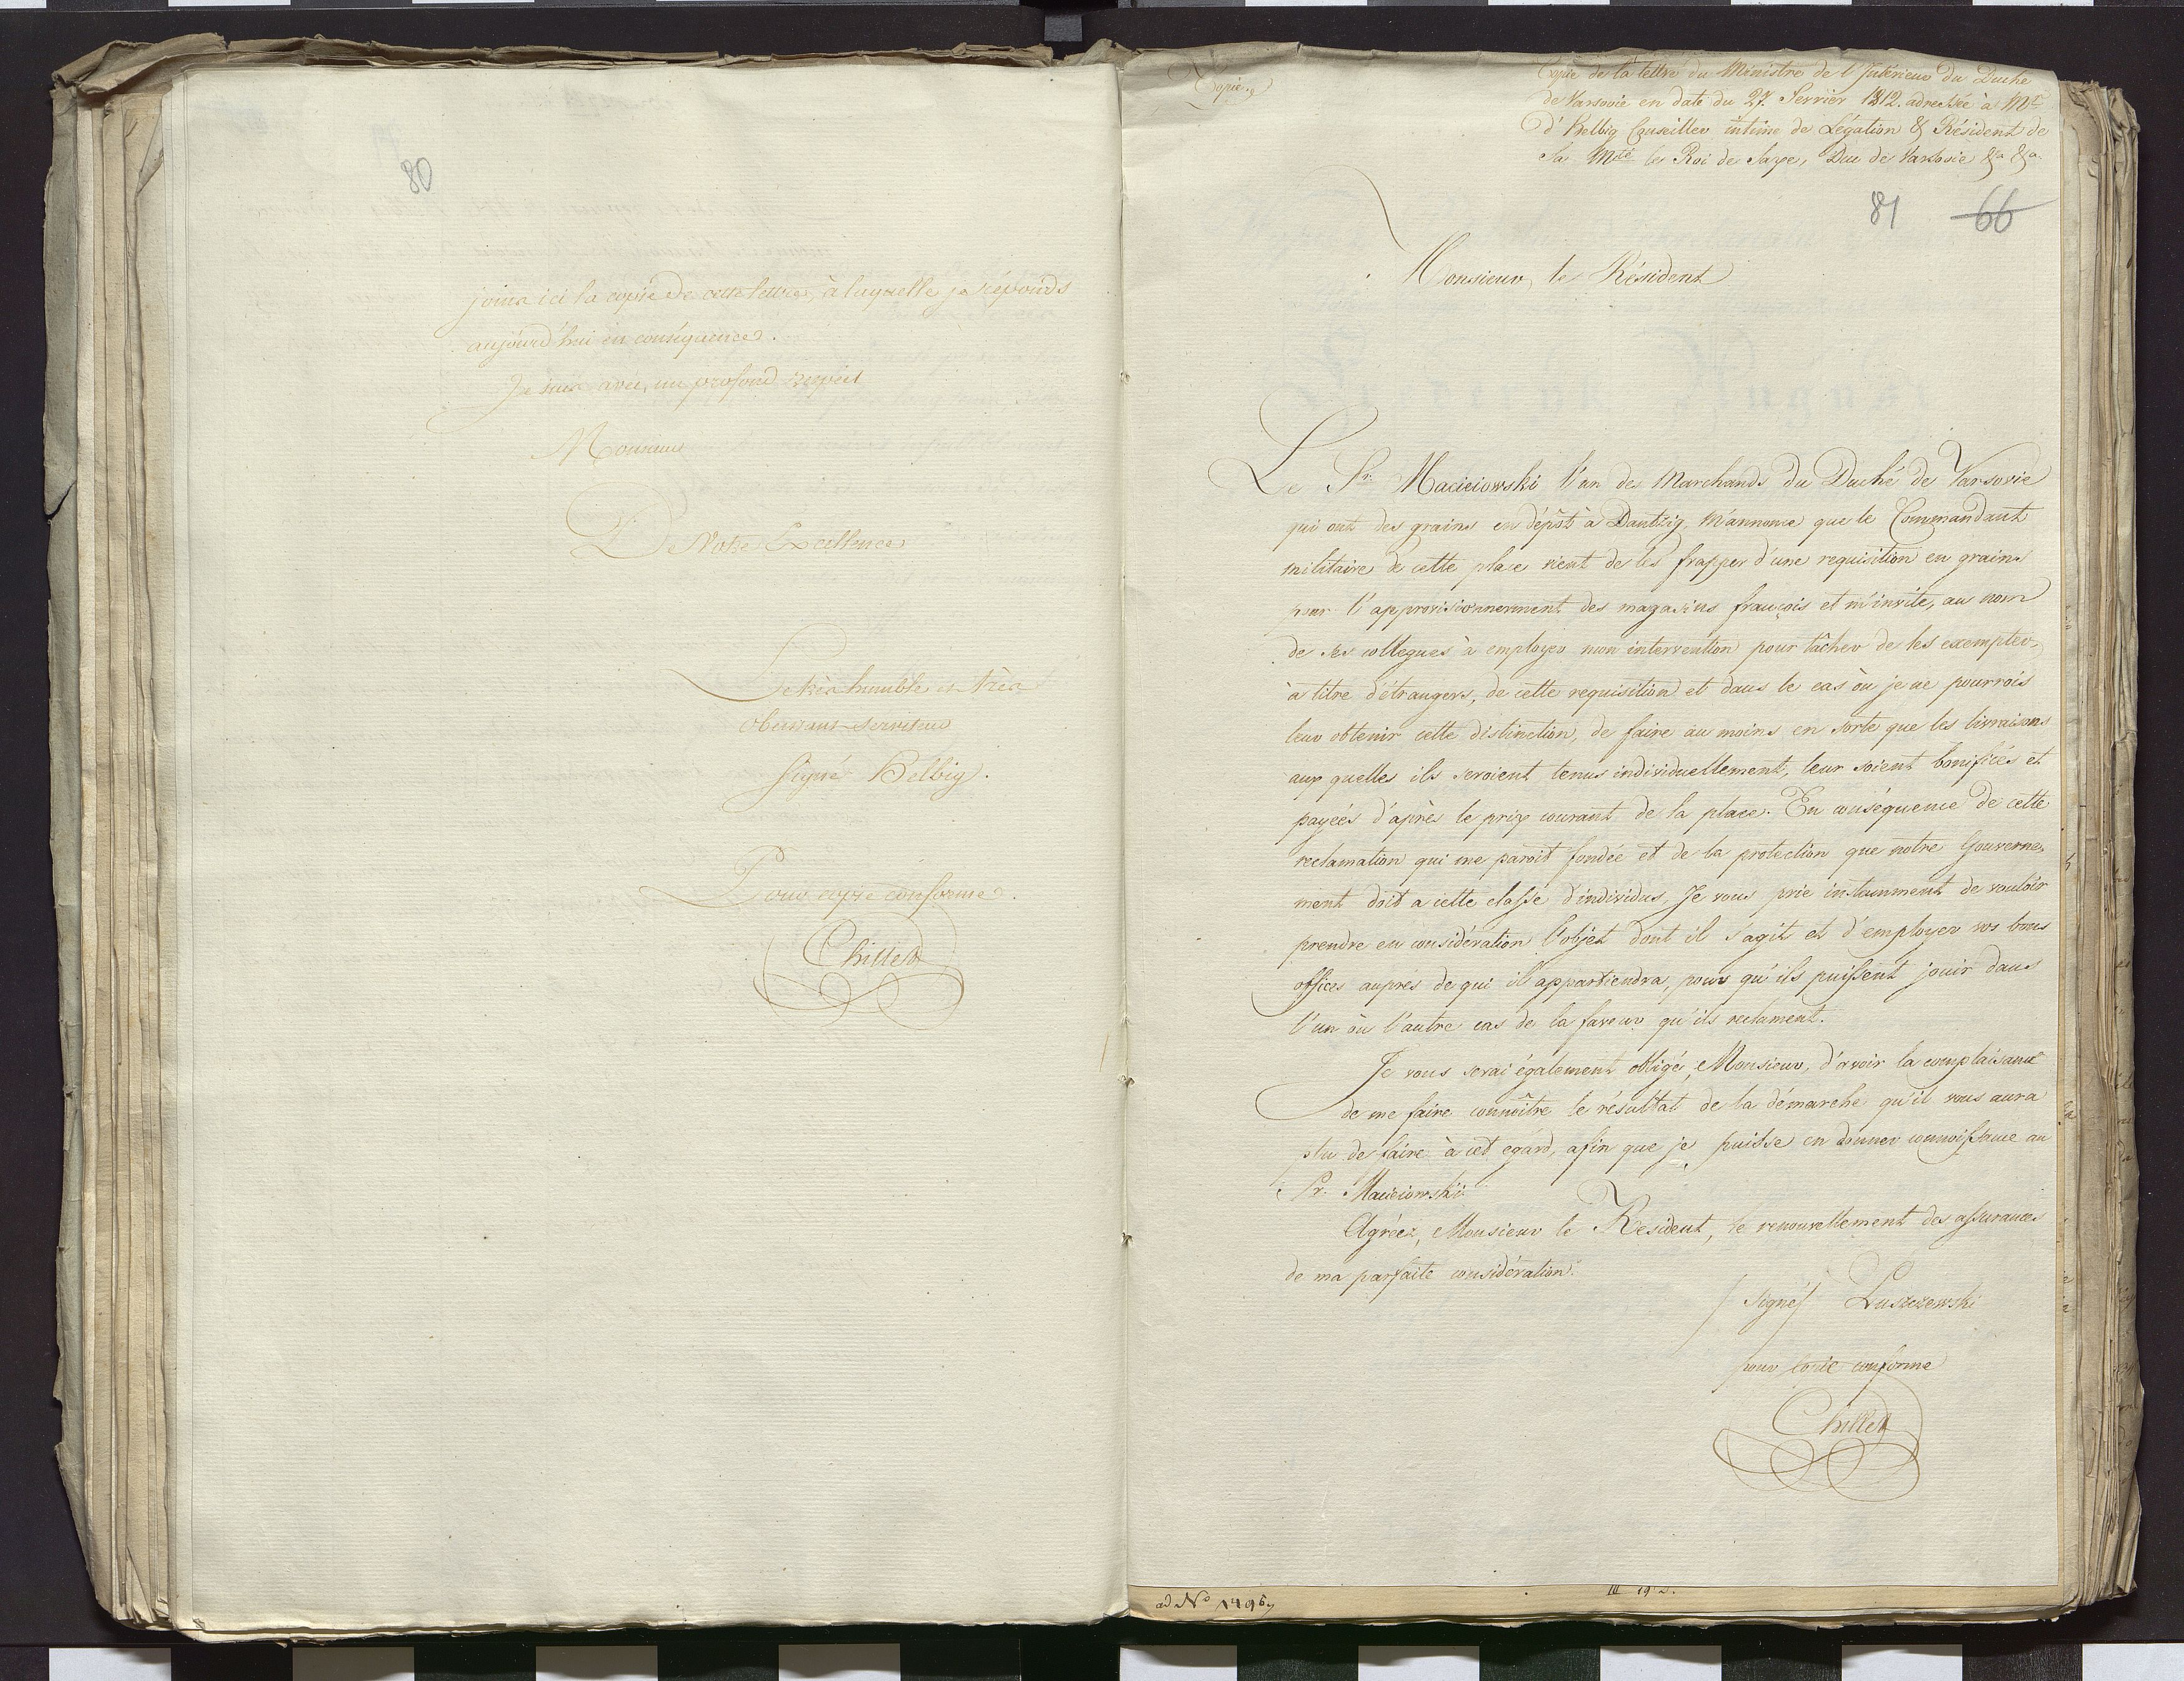 80
joins ici la copie de cette lettre, à laquelle je réponds
aujourd'hui en conséquence.
Je suis avec un profond respect
Monsieur
De Votre Excellence
Le très humble et très
obeissant serviteur
signé Helbig.
Pour copie conforme.
Chillet
Copie.
Copie de la lettre du Ministre de l'Intérieur du Duché
de Varsovie en date du 27. Fevrier 1812. adressée à Mr.
d'Helbig Conseiller intime de Légation & Résident de
Sa Mté le Roi de Saxe, Duc de Varsovie &a &a.
81 66
Monsieur le Résident
Le Sr. Macieiowski l'un des Marchands du Duché de Varsovie
qui ont des grains en dépôt à Dantzig, m'annonce que le Commandant
militaire de cette place vient de les frapper d'une requisition en grains
pour l'approvisionnement des magasins françois et m'invite, au nom
de ses collegues à employer mon intervention pour tâcher de les exempter,
à titre d'étrangers, de cette requisition et dans le cas où je ne pourrois
leur obtenir cette distinction, de faire au moins en sorte que les livraisons
aux quelles ils seroient tenus individuellement, leur soient bonifiées et
payées d'après le prix courant de la place. En conséquence de cette
reclamation qui me paroit fondée et de la protection que notre Gouverne-
ment doit a cette classe d'individus, Je vous prie instamment de vouloir
prendre en considération l'objet dont il s'agit et d'employer vos bons
offices aupres de qui il appartiendra, pour qu'ils puissent jouir dans
l'un ou l'autre cas de la faveur qu'ils reclament.
Je vous serai également obligé, Monsieur, d'avoir la complaisance
de me faire connoître le résultat de la démarche qu'il vous aura
plu de faire à cet égard, afin que je puisse en donner connoissance au
Sr. Macieiowski.
Agréez, Monsieur le Resident, le renouvellement des assurances
de ma parfaite considération.
/signé/ Łuszczewski
pour copie conforme
Chillet
ad No 1496